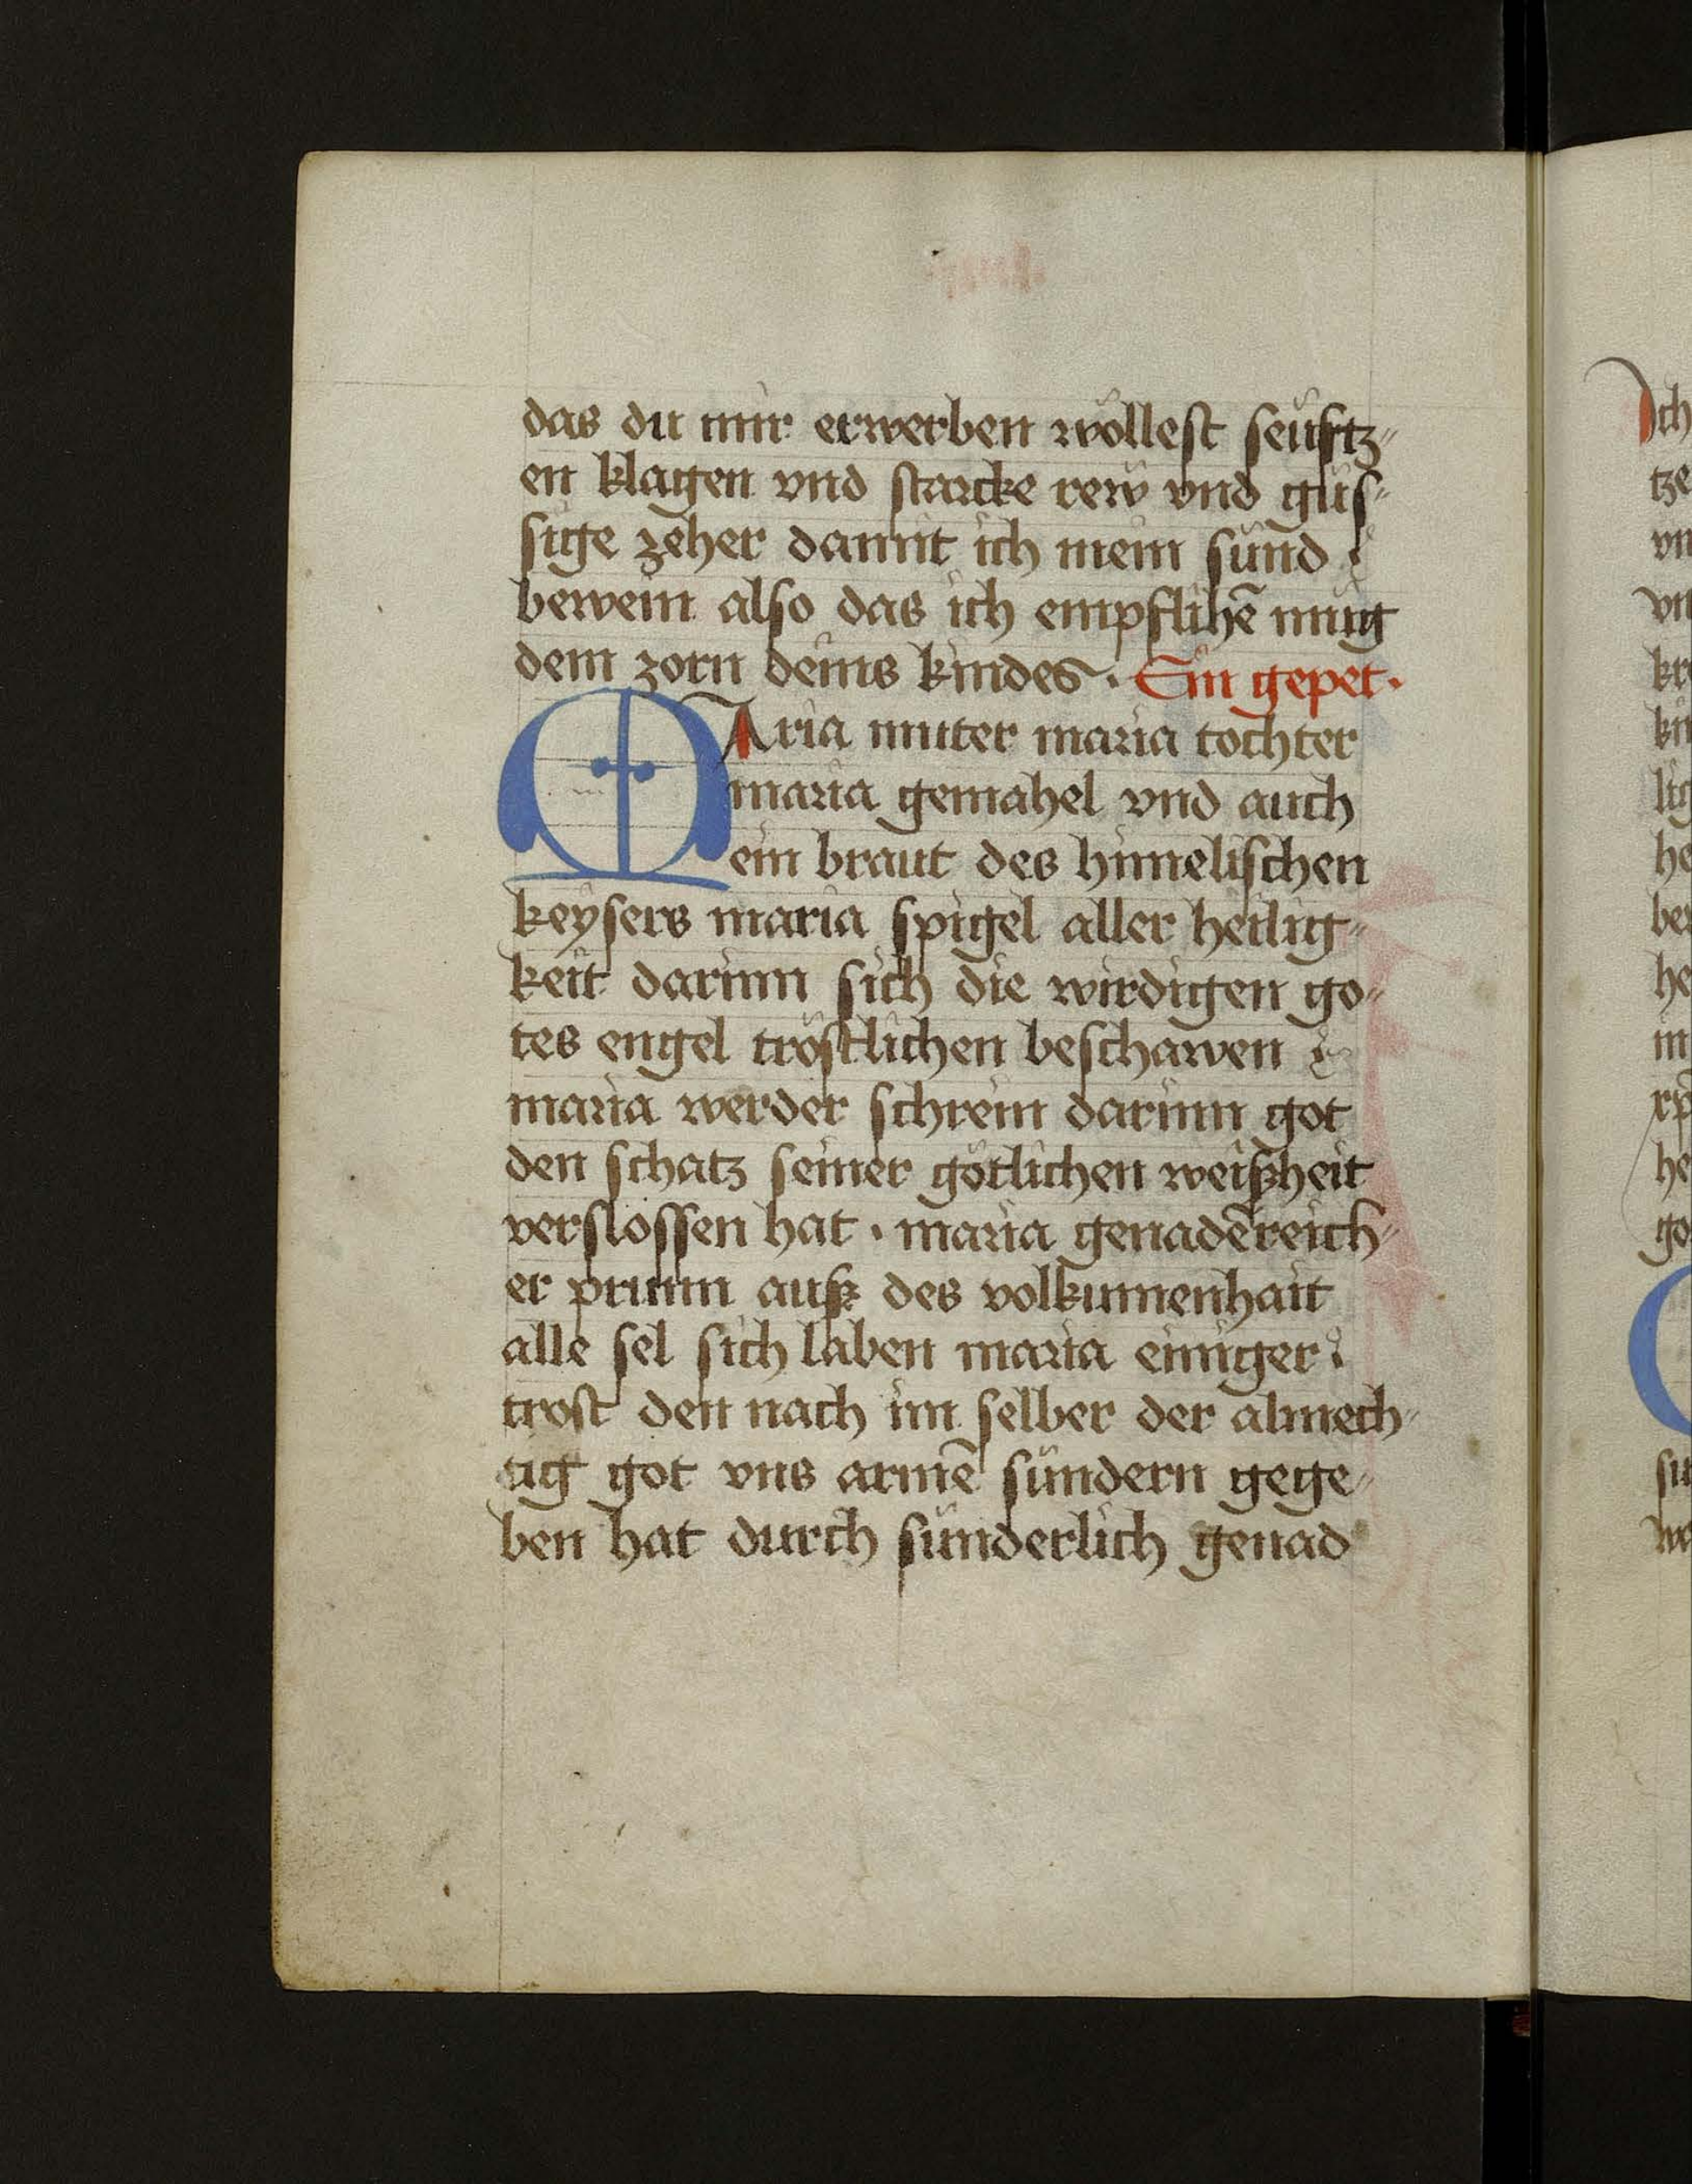 das du mir erwerben wöllest seüftz⸗
en klagen vnd starcke rew vnd güs⸗
sige zeher damit ich mein sünd
bewein also das ich empflihē müg
dem zorn deins kindes · Ein gepet ·
MAria muter maria tochter
maria gemahel vnd auch
ein braut des himelischen
keysers maria spigel aller heilig⸗
keit darinn sich die wirdigen go⸗
tes engel tröstlichen beschawen
maria werder schrein darinn got
den schatz seiner götlichen weißheit
verslossen hat · maria genadēreich⸗
er prunn auß des volkumenhait
alle sel sich laben maria einiger
trost den nach im selber der almech⸗
tig got vns armē sündern gege⸗
ben hat durch sünderlich genad